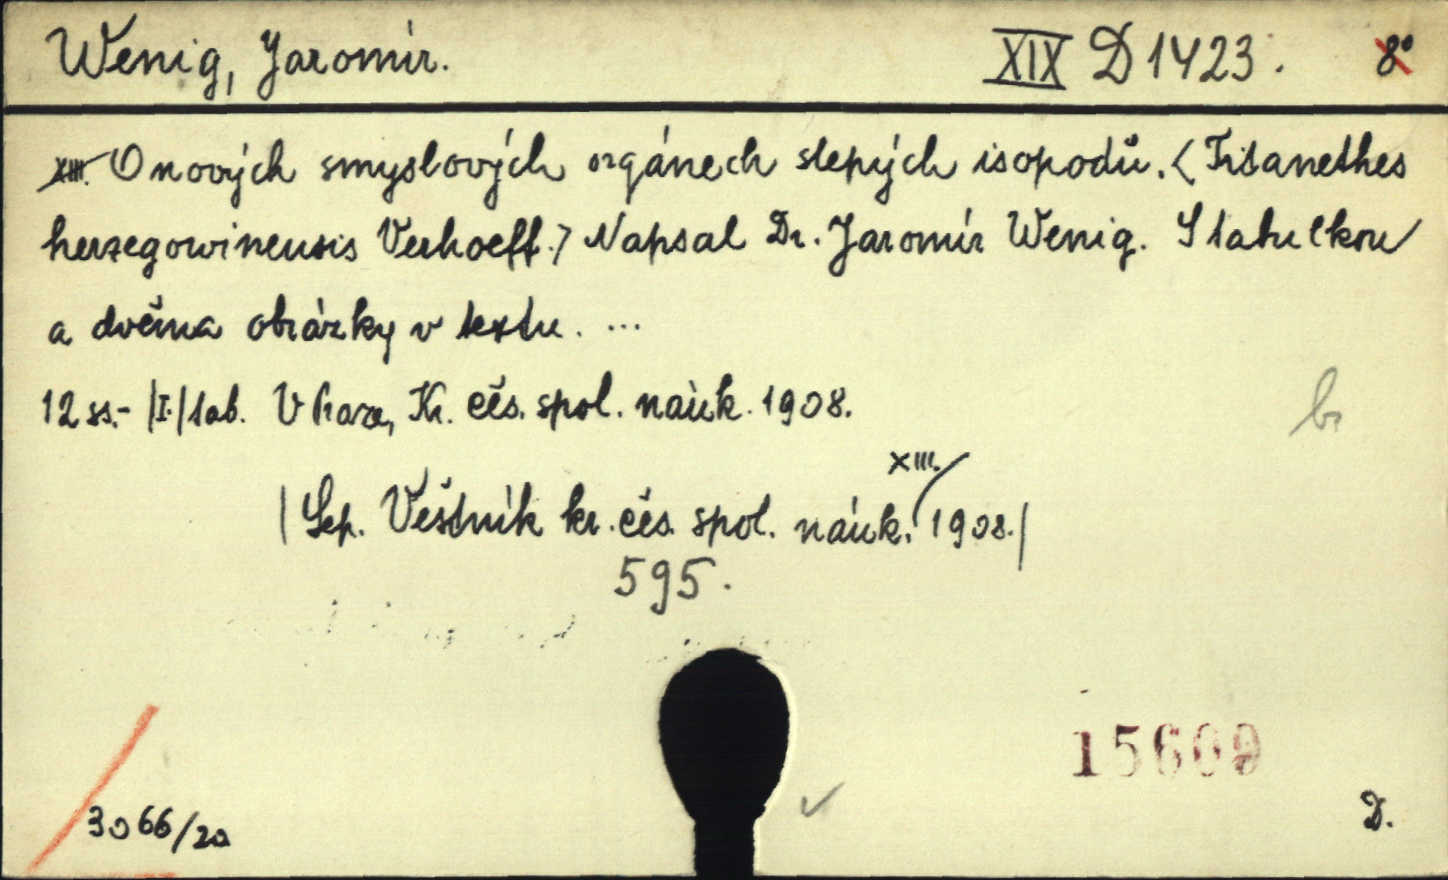 Wenig, Jaromír. XIX D 1423. 8°
XIII. O nových smyslových orgánech slepých isopodů. &lt;Titanethes
herzegowinensis Verhoeff.&gt; Napsal Dr. Jaromír Wenig. S tabulkou
a dvěma obrázky v textu. ...
12 ss.- |I.| tab. V Praze, Kr. čes. spol. náuk. 1908.
XIII.
| Sep. Věstník kr. čes. spol. náuk. 1908.|
595.
15609
3066/20
D.